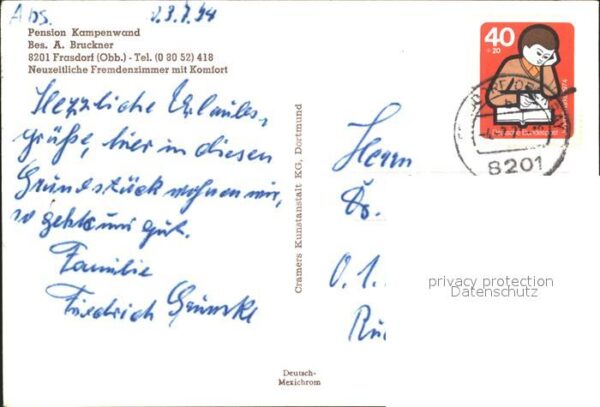 Abs. 23.7.74
Pension Kampenwand
Bes. A. Bruckner
8201 Frasdorf (Obb.) - Tel. (0 80 52) 418
Neuzeitliche Fremdenzimmer mit Komfort
Herzliche Urlaubs-
grüße, hier in diesen
Grundstück wohnen wir,
so geht uns gut.
Familie
Friedrich
Cramers Kunstanstalt KG, Dortmund
Deutsch-
Mexichrom
40
+20
Deutsche Bundespost
8201
Herrn
O.1.
privacy protection
Datenschutz